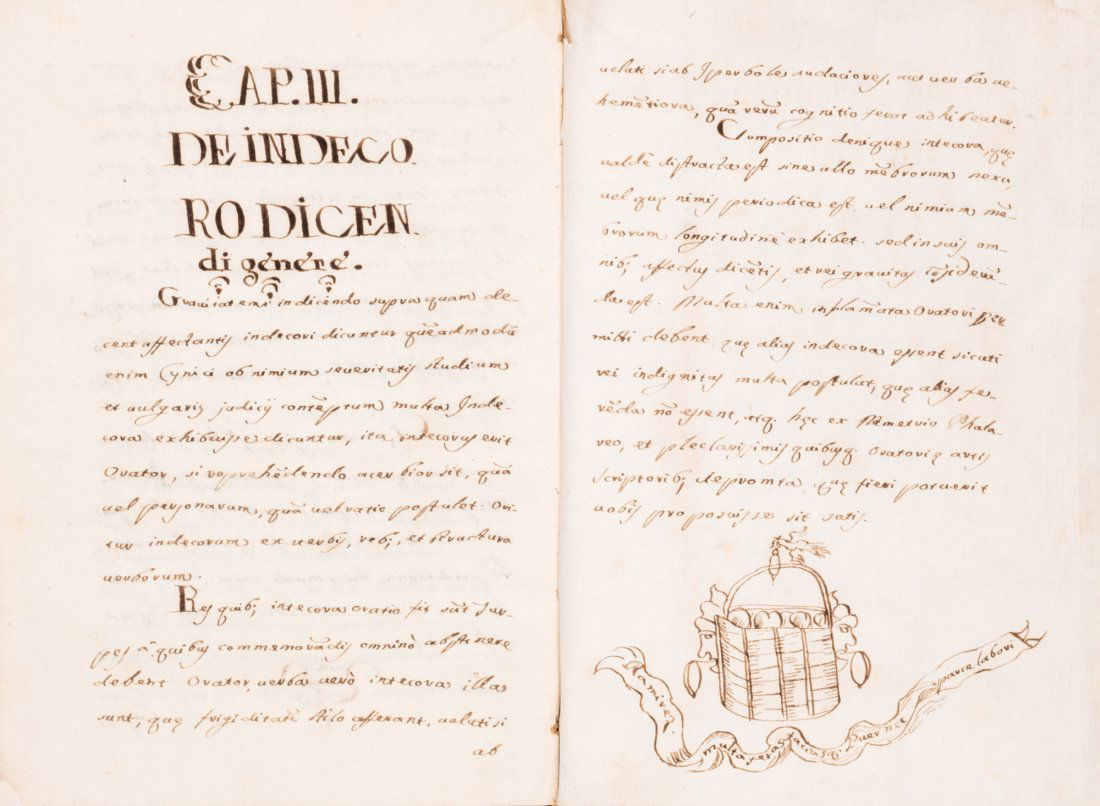 CAP. III.
DE INDECO
RO DICEN
di genere.
Gravitatem in dicendo supra quam de-
cent affectantis indecori dicuntur quẽadmodũ
enim Cynici ob nimium severitatis studium
et vulgaris judicij contẽptum multa Inde-
cora exhibuisse dicuntur, ita intecorus erit
Orator, si reprehẽdendo acerbior sit, quã
vel personarum, quã vel ratio postulet. Ori-
tur indecorum ex verbis, reb;, et structura
verborum.
Res quib; intecora oratio fit sũt Tur-
pes â quibus commemorãdis omninò abstinere
debent Orator, verba verò intecora illa
sunt, quę frigiditatẽ stilo afferant, veluti si
ab
veluti si ab Iperbole audaciores, aut verba ve-
hemẽtiora, quã rerũ cognitio ferat adhibeatur.
Compositio denique intecora, quę
valdè distracta est sine ullo mẽbrorum nexu,
vel quę nimis periodica est, vel nimium mẽ-
brorum longitudinẽ exhibet. sed in suis om-
nib; affectus dicẽtis, et rei gravitas cõsiderã-
da est. Multa enim inflãmata Oratori per
mitti debent, quę alias indecora essent sicuti
rei indignitas multa postulat, quę alias fe-
rẽda nõ essent, atq. hęc ex Demetrio Phala-
reo, et pleclarisimis quibusq. oratorię artis
scriptorib; depromta, quę fieri potuerit
vobis proposuisse sit satis.
Ramirez.
multa feras, faciasq. Puer nec parce labori